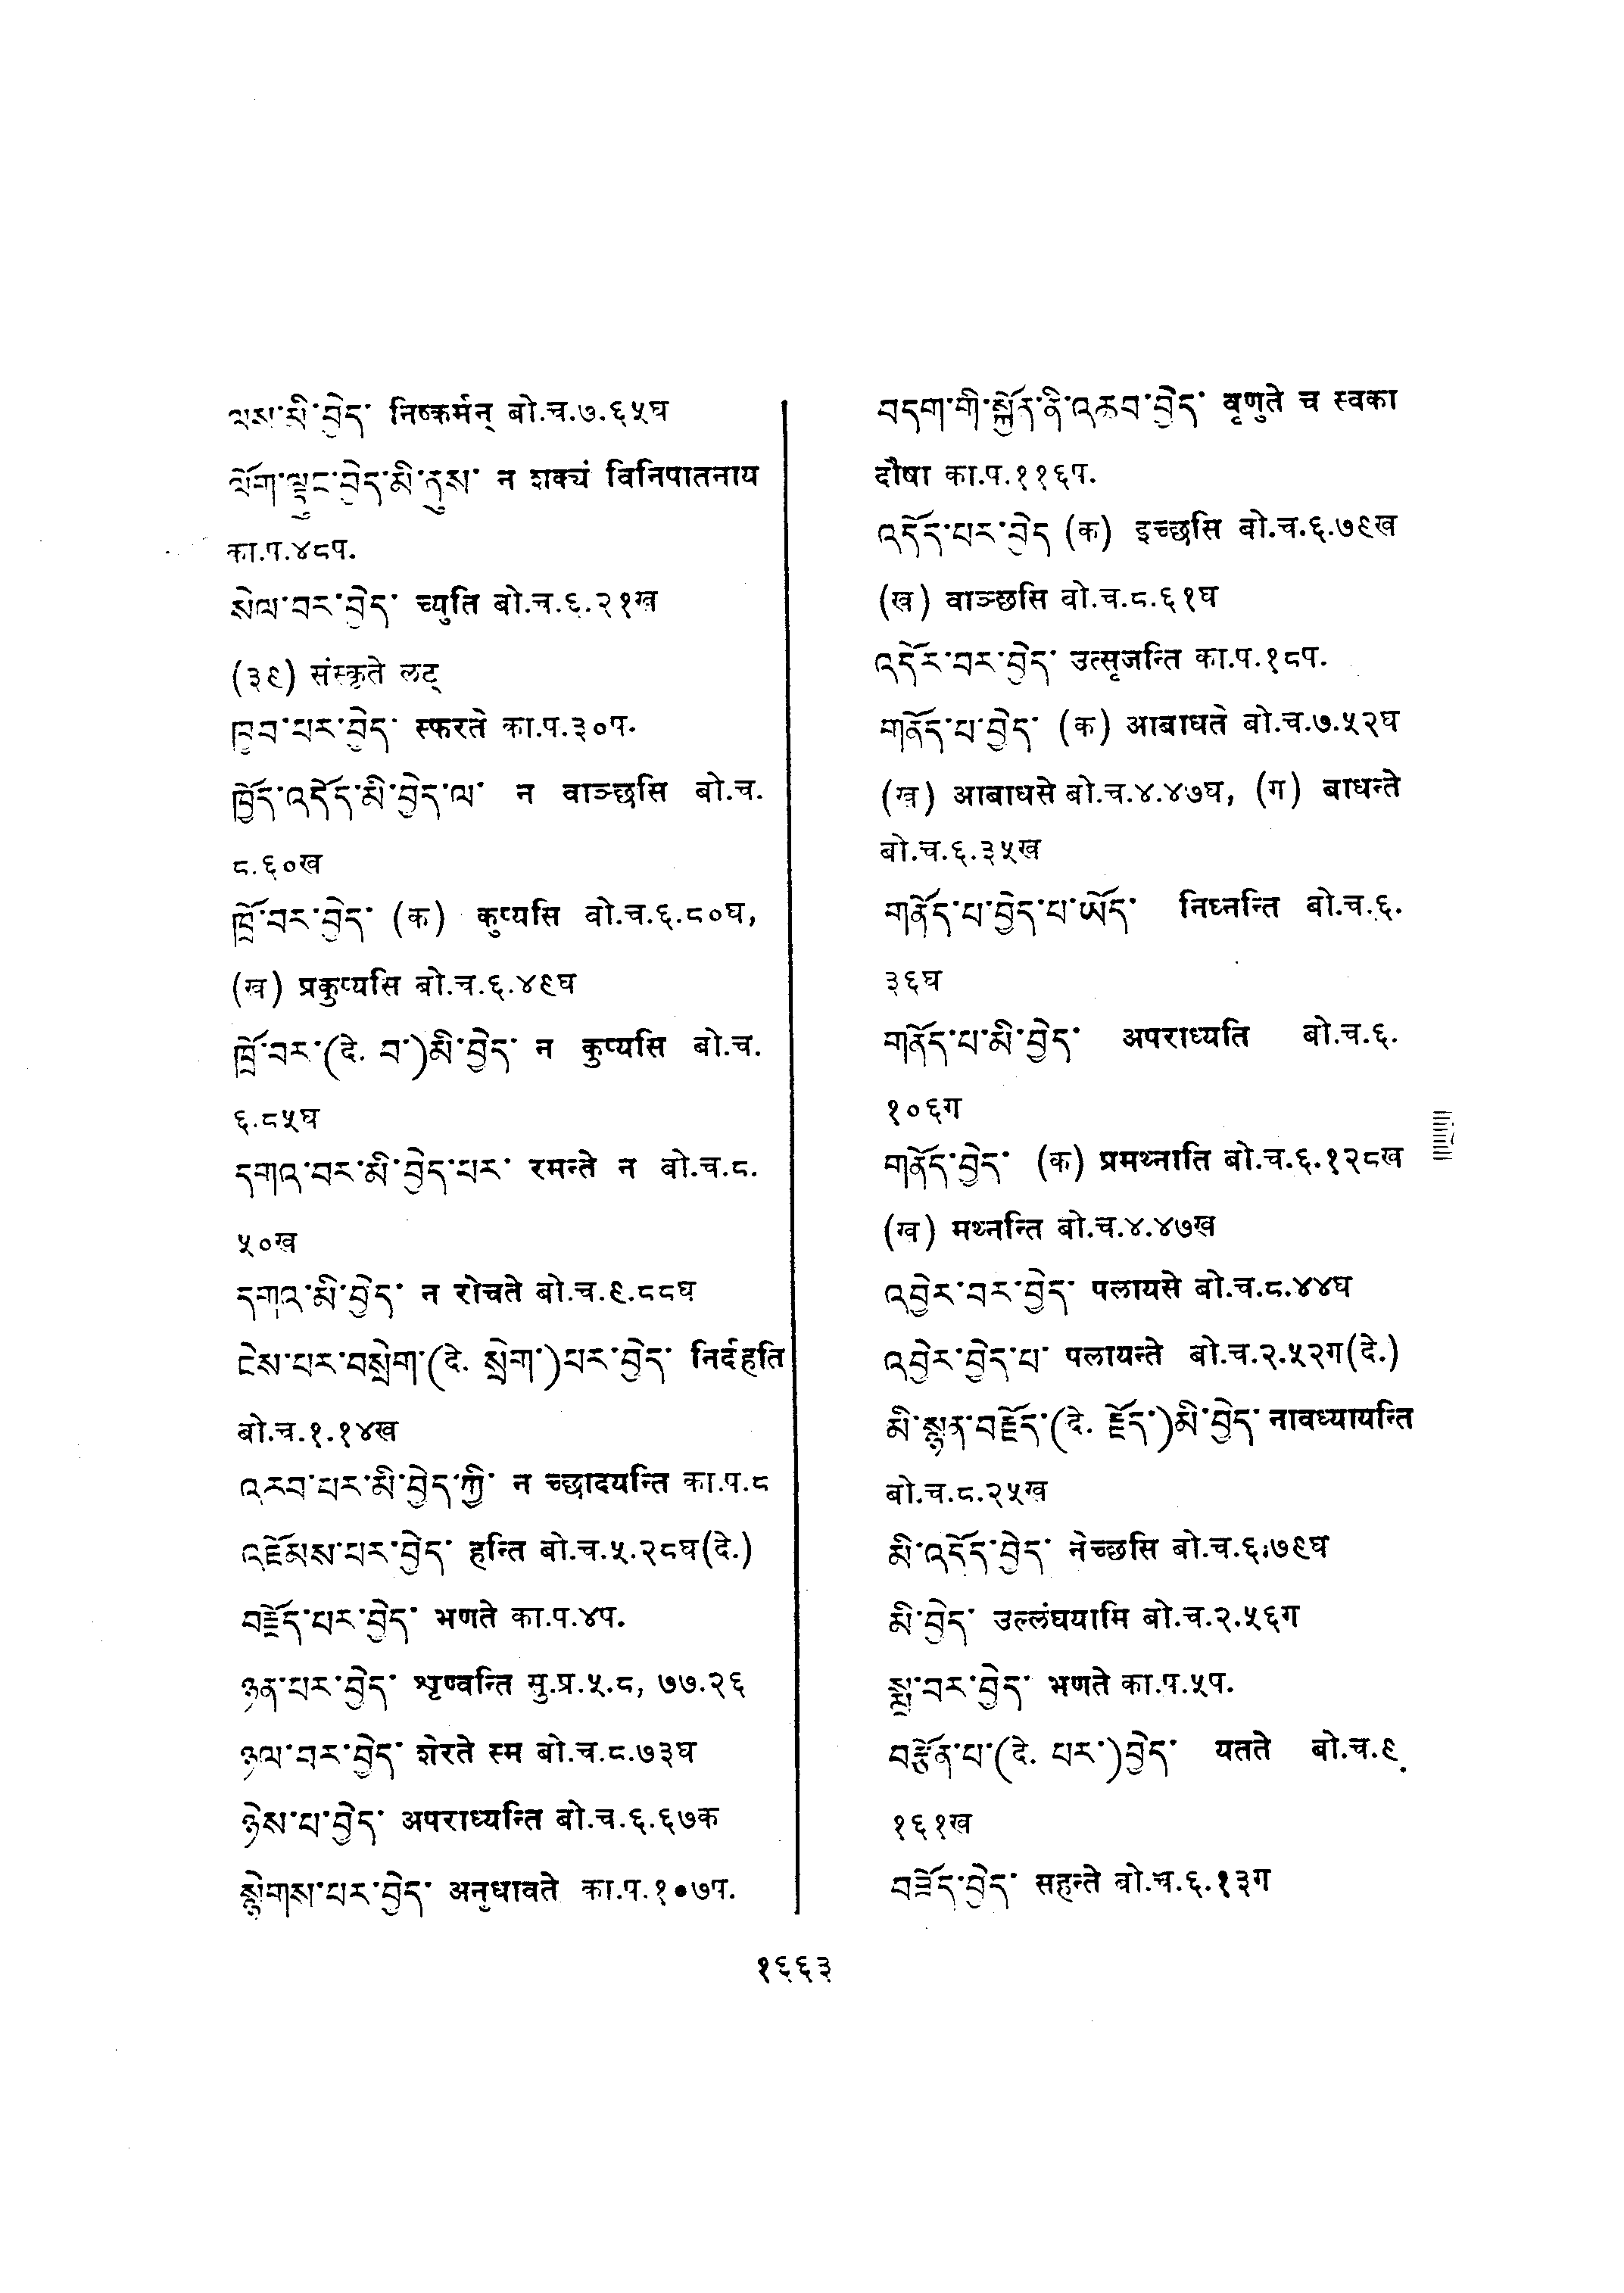 ལས་མི་བྱེད་ निष्कर्मन् बो.च.७.६५घ
ལོག་ལྟུང་བྱེད་མི་ནུས་ न शक्यं विनिपातनाय
का.प.४८प.
སེལ་བར་བྱེད་ च्युति बो.च.६.२१ख
(३९) संस्कृते लट्
ཁྱབ་པར་བྱེད་ स्फरते का.प.३०प.
ཁྱོད་འདོད་མི་བྱེད་ལ་ न वाञ्छसि बो.च.
८.६०ख
ཁྲོ་བར་བྱེད་ (क) कुप्यसि बो.च.६.८०घ,
(ख) प्रकुप्यसि बो.च.६.४९घ
ཁྲོ་བར་(दे. བ་)མི་བྱེད་ न कुप्यसि बो.च.
६.८५घ
དགའ་བར་མི་བྱེད་པར་ रमन्ते न बो.च.८.
५०ख
དགའ་མི་བྱེད་ न रोचते बो.च.९.८८घ
ངེས་པར་བསྲེག་(दे. སྲེག་)པར་བྱེད་ निर्दहति
बो.च.१.१४ख
འཆབ་པར་མི་བྱེད་ཀྱི་ न च्छादयन्ति का.प.८
འཇོམས་པར་བྱེད་ हन्ति बो.च.५.२८घ(दे.)
བརྗོད་པར་བྱེད་ भणते का.प.४प.
ཉན་པར་བྱེད་ शृण्वन्ति सु.प्र.५.८, ७७.२६
ཉལ་བར་བྱེད་ शेरते स्म बो.च.८.७३घ
ཉེས་པ་བྱེད་ अपराध्यन्ति बो.च.६.६७क
སྙེགས་པར་བྱེད་ अनुधावते का.प.१०७प.
བདག་གི་སྐྱོན་ནི་འཆབ་བྱེད་ वृणुते च स्वका
दौषा का.प.११६प.
འདོད་པར་བྱེད (क) इच्छसि बो.च.६.७९ख
(ख) वाञ्छसि बो.च.८.६१घ
འདོར་བར་བྱེད་ उत्सृजन्ति का.प.१८प.
གནོད་པ་བྱེད་ (क) आबाधते बो.च.७.५२घ
(ख) आबाधसे बो.च.४.४७घ, (ग) बाधन्ते
बो.च.६.३५ख
གནོད་པ་བྱེད་པ་ཡོད་ निघ्नन्ति बो.च.६.
३६घ
གནོད་པ་མི་བྱེད་ अपराध्यति बो.च.६.
१०६ग
གནོད་བྱེད་ (क) प्रमथ्नाति बो.च.६.१२८ख
(ख) मथ्नन्ति बो.च.४.४७ख
འབྱེར་བར་བྱེད་ पलायसे बो.च.८.४४घ
འབྱེར་བྱེད་པ་ पलायन्ते बो.च.२.५२ग(दे.)
མི་སྙན་བརྗོད་(दे. རྗོད་)མི་བྱེད་ नावध्यायन्ति
बो.च.८.२५ख
མི་འདོད་བྱེད་ नेच्छसि बो.च.६.७९घ
མི་བྱེད་ उल्लंघयामि बो.च.२.५६ग
སྨྲ་བར་བྱེད་ भणते का.प.५प.
བརྩོན་པ་(दे. པར་)བྱེད་ यतते बो.च.९.
१६१ख
བཟོད་བྱེད་ सहन्ते बो.च.६.१३ग
१६६३